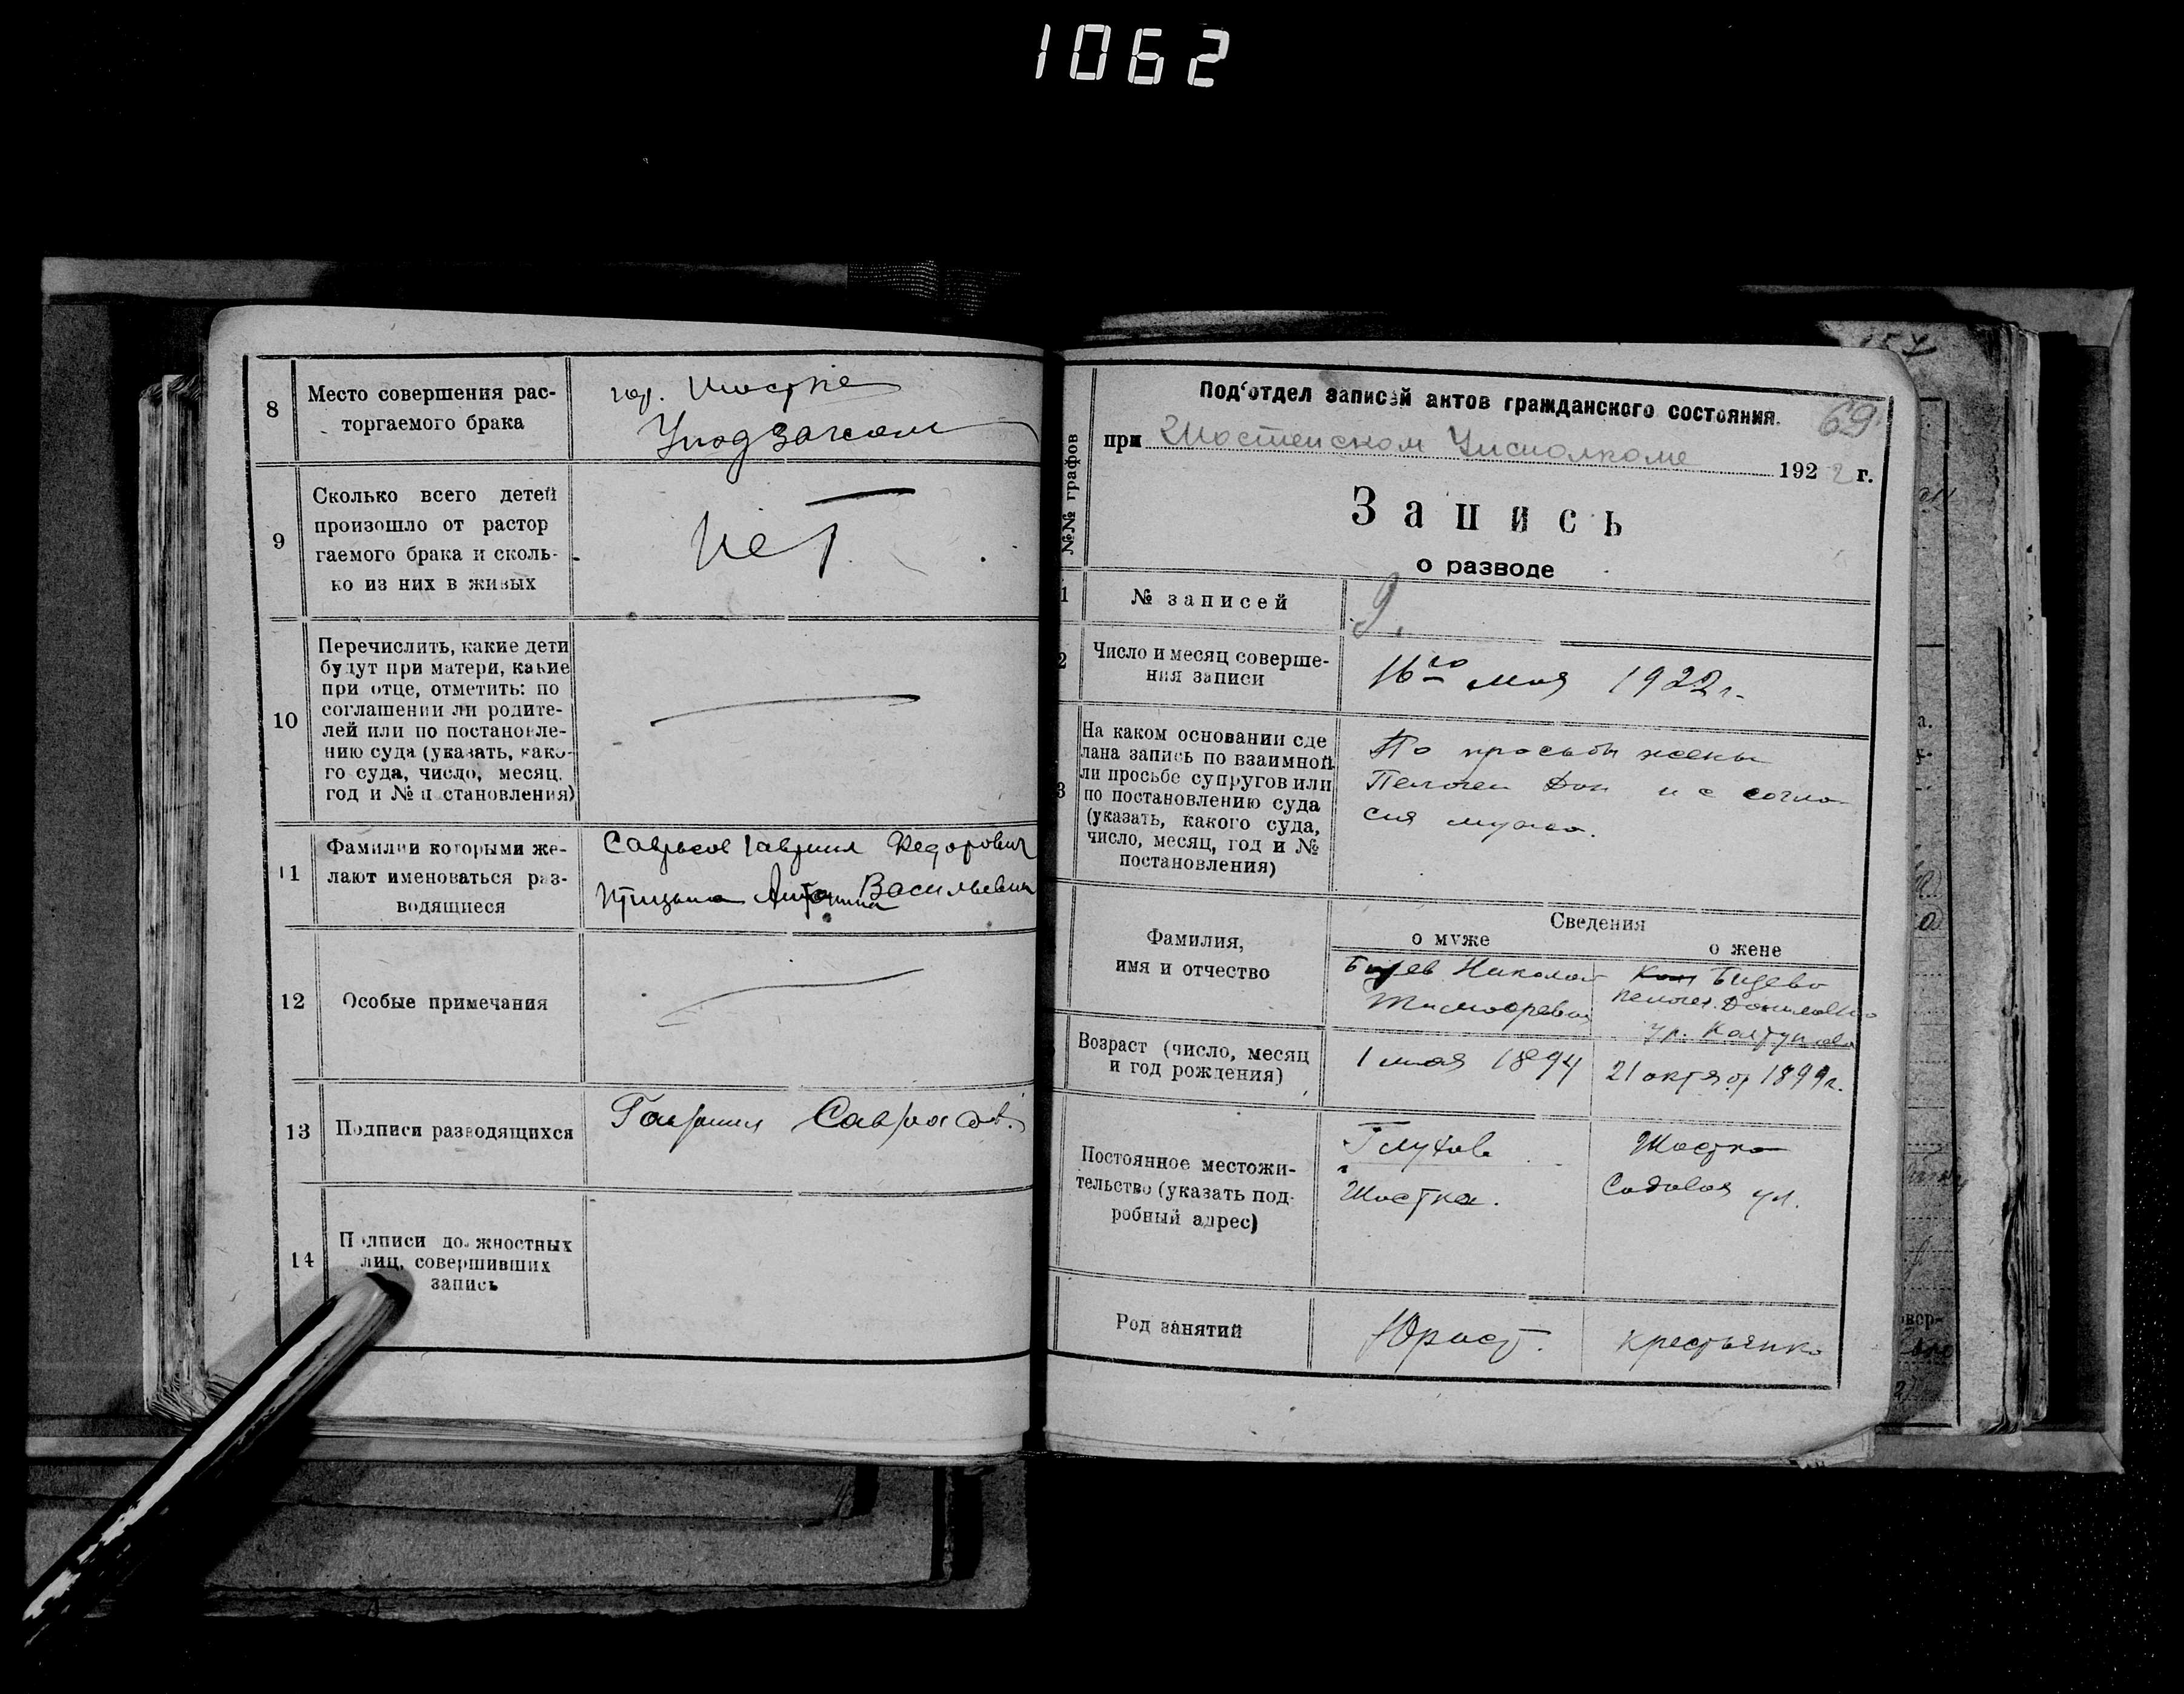 1062
8
Место совершения рас-
торгаемого брака
гор. Шостка
Уподзагсом
9
Сколько всего детей
произошло от растор
гаемого брака и сколь-
ко из них в живых
нет
10
Перечислить, какие дети
будут при матери, какие
при отце, отметить: по
соглашении ли родите-
лей или по постановле-
нию суда (указать, како-
го суда, число, месяц,
год и № п становления)
11
Фамилии которыми же-
лают именоваться раз-
водящиеся
Гавриил Федорович
Птицына Антонина Васильевна
12
Особые примечания
13
Подписи разводящихся
Гавриил
14
Подписи должностных
лиц, совершивших
запись
69
№№ графов
Под‘отдел записей актов гражданского состояния.
при Шостенском Уисполкоме 1922 г.
Запись
о разводе
1
№ записей
9.
2
Число и месяц соверше-
ния записи
16го мая 1922 г.
3
На каком основании сде
лана запись по взаимной
ли просьбе супругов или
по постановлению суда
(указать, какого суда,
число, месяц, год и №
постановления)
По просьбы жены
Пелагеи Дан и с согла-
сия мужа.
Сведения
о муже
о жене
Фамилия,
имя и отчество
Николай
Тимофеевич
Пелагея Даниловна
Возраст (число, месяц
и год рождения)
1 мая 1894
21 октяб 1899 г.
Постоянное местожи-
тельство (указать под-
робный адрес)
Глухов
Шостка.
Шостка
Садовая ул.
Род занятий
Юрист.
крестьянка